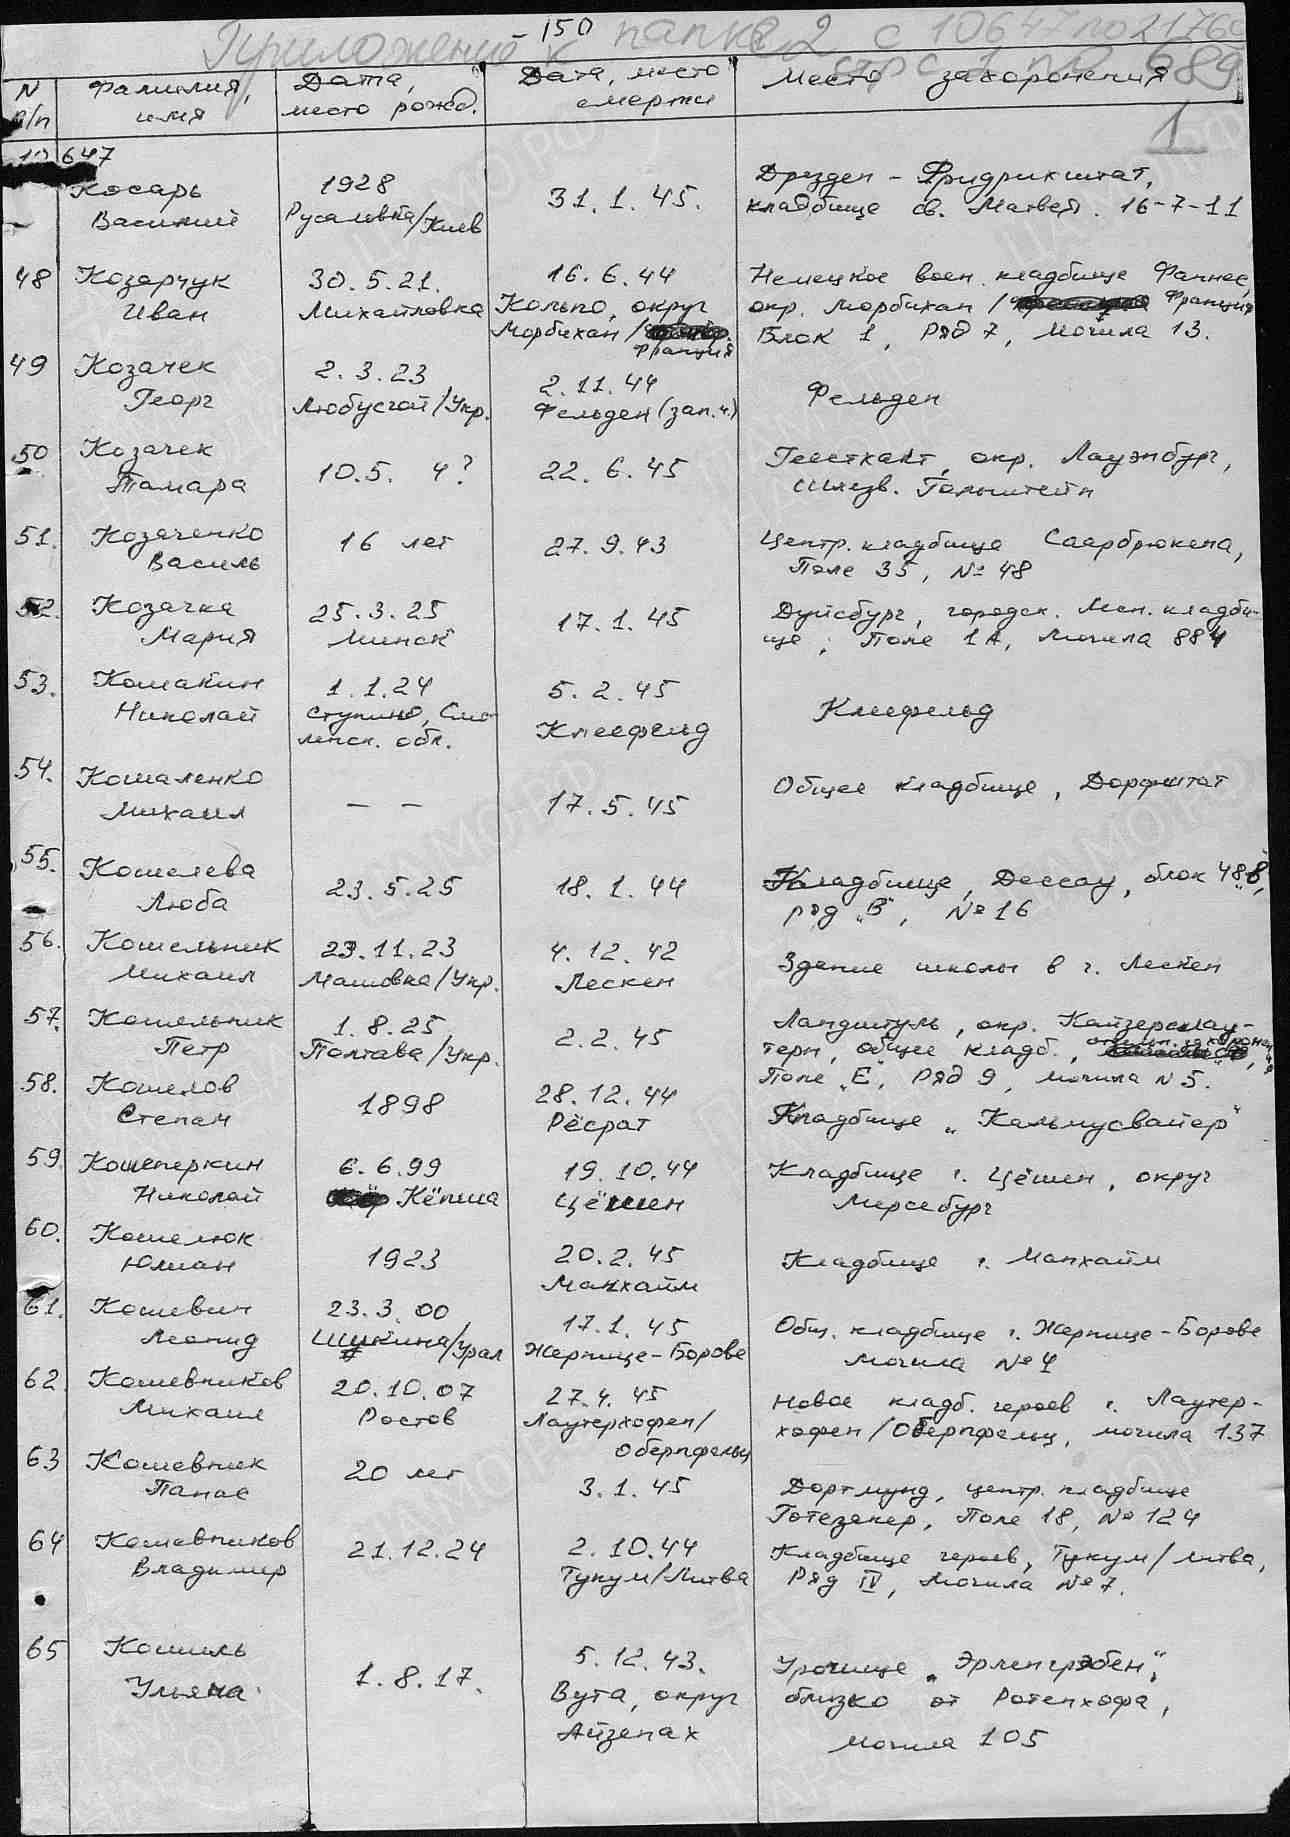 - 150
Приложение к папке 2 с 10647 по 21760
стр с 1 по 689
N п/п
Фамилия, имя
Дата, место рожд.
Дата, место смерти
Место захоронения
1
10 647
Косарь Василий
1928 Русаливка/Киев
31.1.45.
Дрезден - Фридрихштат,
кладбище св. Матвея. 16-7-11
48 Козарчук Иван
30.5.21. Михайловка
16.6.44 Кольпо, округ Морбихан / Франция
Немецкое воен. кладбище Фаннее,
окр. Морбихан / Франция
Блок 1, Ряд 7, могила 13.
49 Козачек Георг
2.3.23 Любусгой/Укр.
2.11.44 Фельден (зап.ч.)
Фельден
50 Козачек Тамара
10.5. 4?
22.6.45
Геестхахт, окр. Лауэнбург,
Шлезв. Гольштейн
51. Козаченко Василь
16 лет
27.9.43
Центр. кладбище Саарбрюкена,
Поле 35, № 48
52. Козачка Мария
25.3.25 Минск
17.1.45
Дуйсбург, городск. Мен. кладби-
ще, Поле 1А, Могила 884
53. Кошакин Николай
1.1.24 Ступино, Смо-
ленск. обл.
5.2.45 Клеефельд
Клеефельд
54. Кошаленко Михаил
— —
17.5.45
Общее кладбище, Дорфштат
55. Кошелева Люба
23.5.25
18.1.44
Кладбище, Дессау, блок 48 "в",
ряд "В", № 16
56. Кошельник Михаил
23.11.23 Машовка/Укр.
4.12.42 Лескен
Здание школы в г. Лескен
57. Кошельник Петр
1.8.25 Полтава/Укр.
2.2.45
Ландштуль, окр. Кайзерслау-
терн, общее кладб.,
Поле "Е", Ряд 9, могила N 5.
58. Кошелов Степан
1898
28.12.44 Рёсрат
Кладбище "Кальмусвайер"
59. Кошеперкин Николай
6.6.99 Кёпша
19.10.44 Цёшен
Кладбище г. Цёшен, округ
Мерсебург
60. Кошелюк Юлиан
1923
20.2.45 Манхайм
Кладбище г. Манхайм
61. Кошевин Леонид
23.3.00 Щукина/Урал
17.1.45 Жерпище-Борове
Общ. кладбище г. Жерпище-Борове
могила № 4
62. Кошевников Михаил
20.10.07 Ростов
27.4.45 Лаутерхофен/
Оберпфельц
Новое кладб. героев г. Лаутер-
хофен/Оберпфельц, могила 137
63 Кошевник Панас
20 лет
3.1.45
Дортмунд, центр. кладбище
Готезакер, Поле 18, № 124
64 Кошевников Владимир
21.12.24
2.10.44 Тукум/Литва
Кладбище героев, Тукум/Литва,
Ряд IV, Могила № 7.
65 Кошиль Ульяна
1.8.17.
5.12.43. Вута, округ Айзенах
Урочище "Эрленгрэбен",
близко от Ротенхофа,
могила 105
ЦАМО.РФ